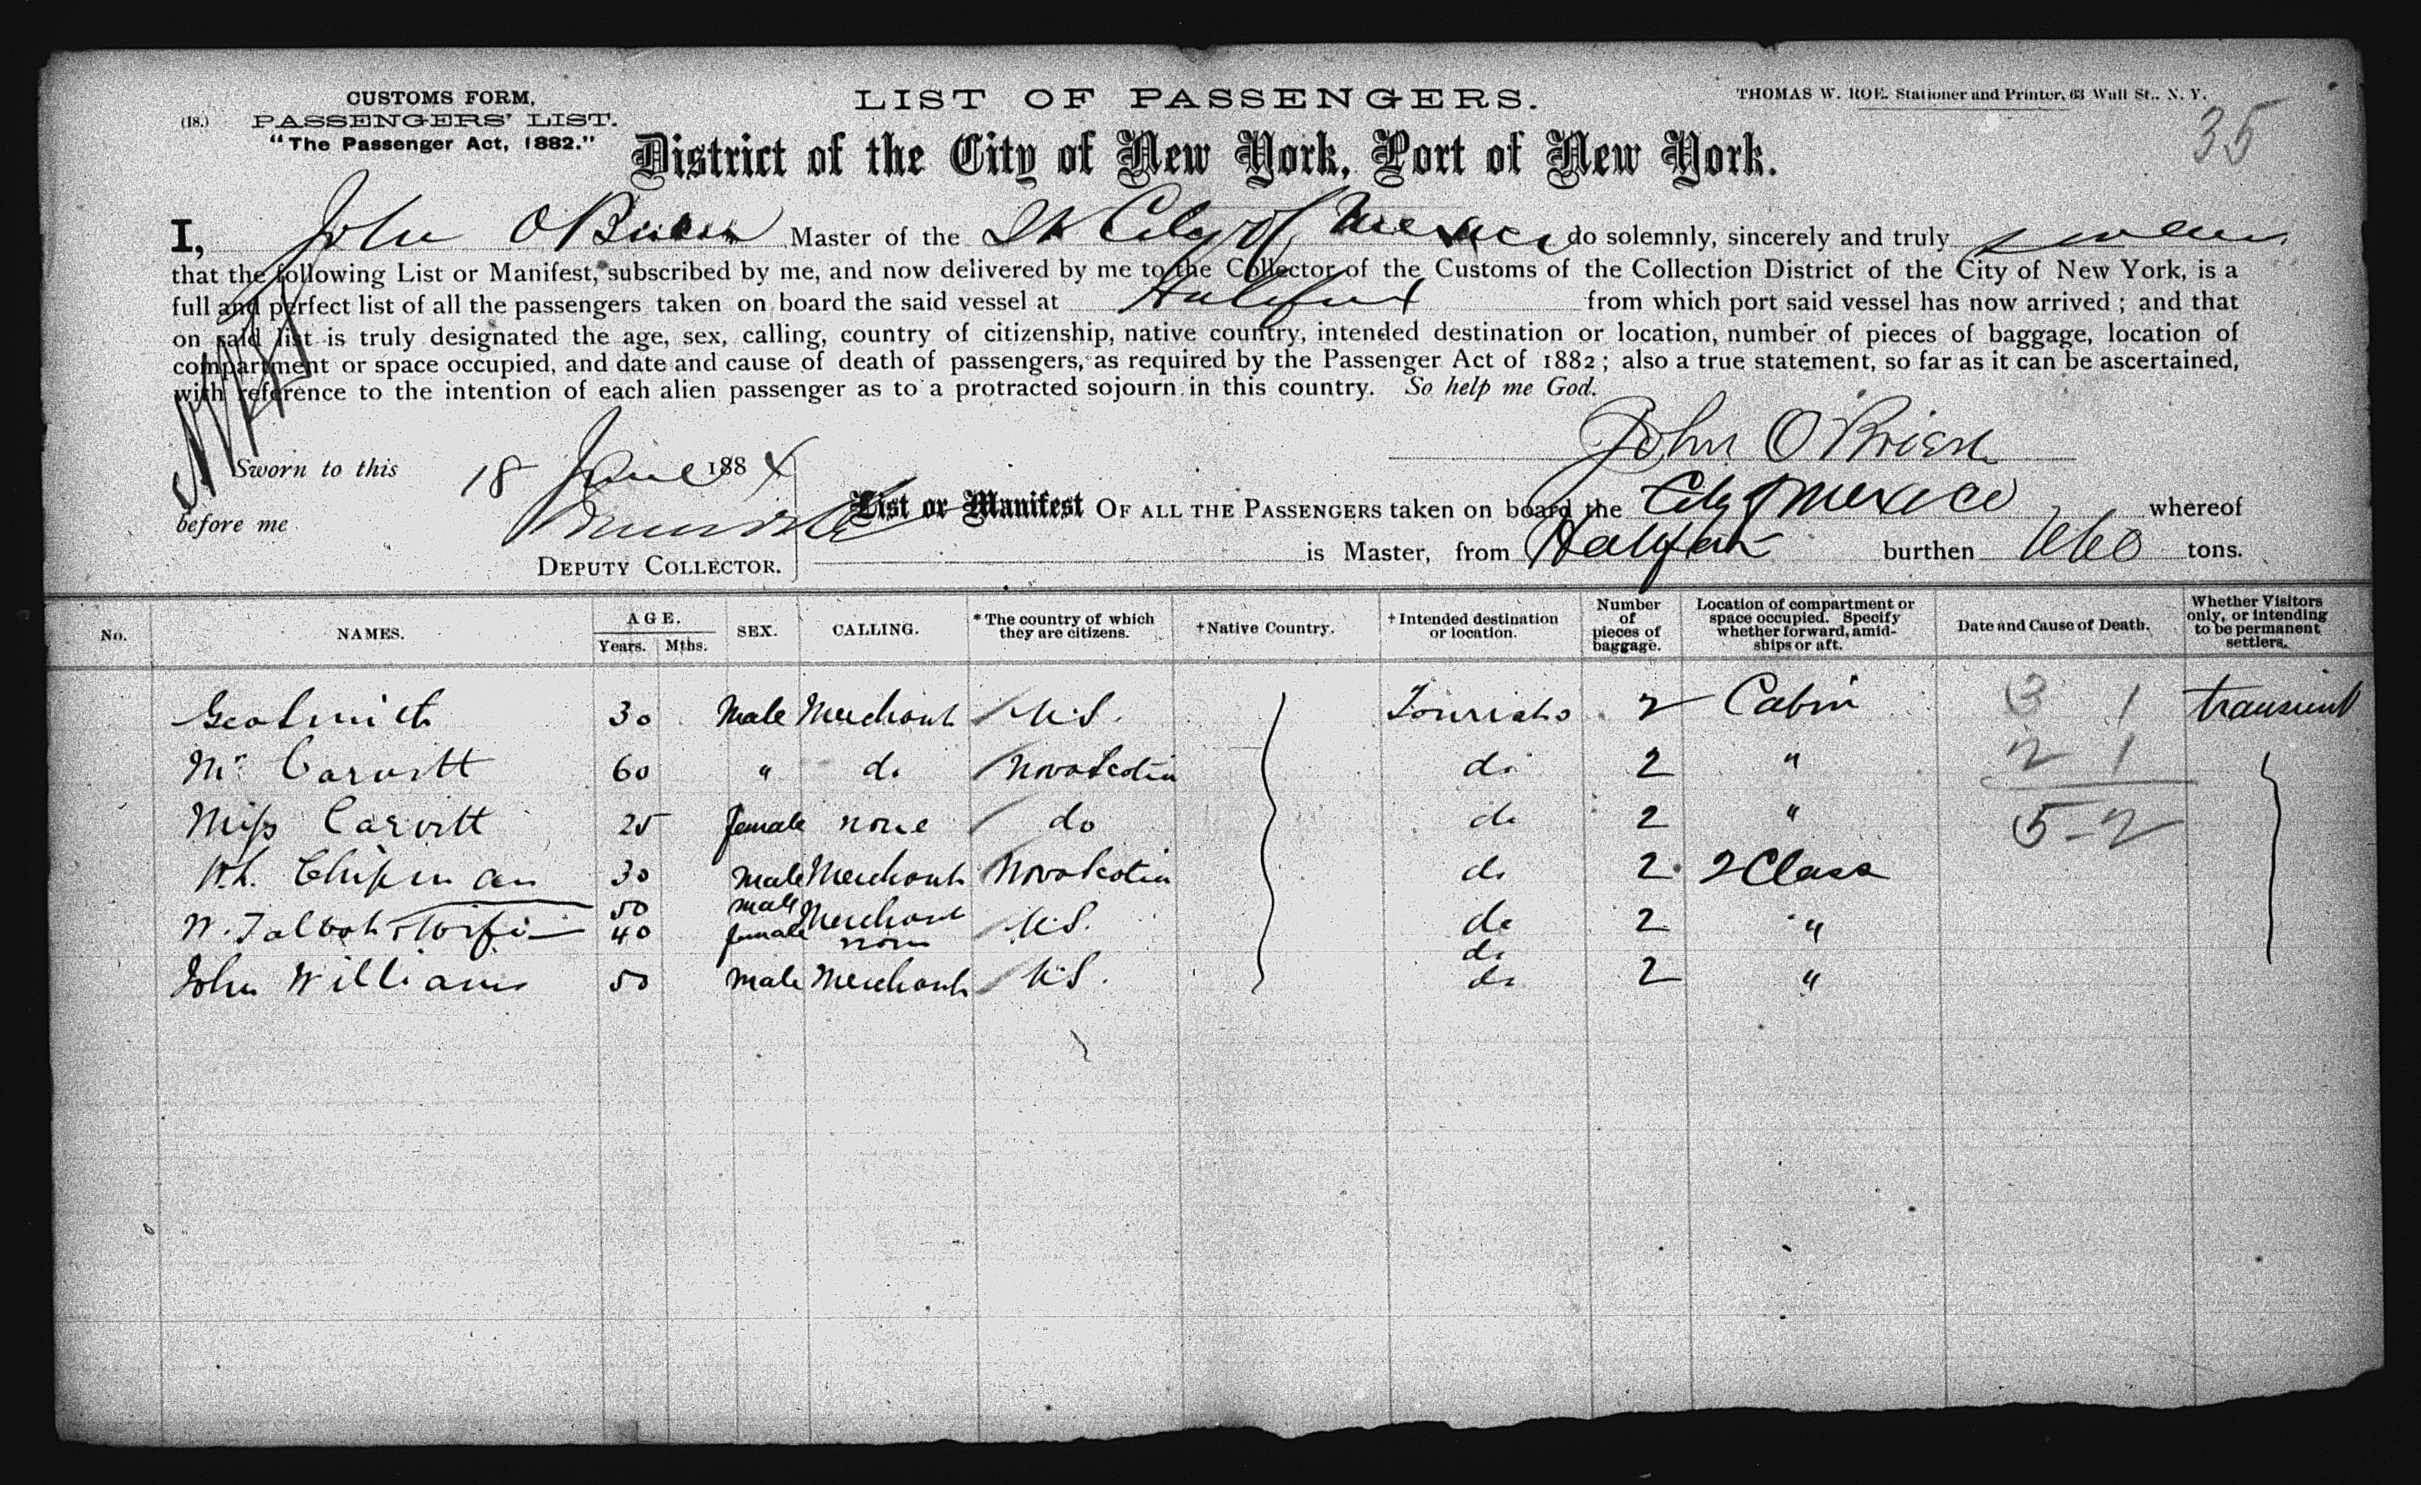 CUSTOMS FORM,
(18.) PASSENGERS' LIST.
"The Passenger Act, 1882."
LIST OF PASSENGERS.
THOMAS W. ROE. Stationer and Printer, 63 Wall St., N. Y.
35
District of the City of New York, Port of New York.
I, John O Brien Master of the City of Mexico do solemnly, sincerely and truly swear
that the following List or Manifest, subscribed by me, and now delivered by me to the Collector of the Customs of the Collection District of the City of New York, is a
full and perfect list of all the passengers taken on board the said vessel at Halifax from which port said vessel has now arrived; and that
on said list is truly designated the age, sex, calling, country of citizenship, native country, intended destination or location, number of pieces of baggage, location of
compartment or space occupied, and date and cause of death of passengers, as required by the Passenger Act of 1882; also a true statement, so far as it can be ascertained,
with reference to the intention of each alien passenger as to a protracted sojourn in this country. So help me God.
John O Brien
Sworn to this 18 June 1884
before me
DEPUTY COLLECTOR.
List or Manifest OF ALL THE PASSENGERS taken on board the City of Mexico whereof
is Master, from Halifax burthen tons.
No. NAMES. AGE. Years. Mths. SEX. CALLING. *The country of which they are citizens. †Native Country. †Intended destination or location. Number of pieces of baggage. Location of compartment or space occupied. Specify whether forward, amidships or aft. Date and Cause of Death. Whether Visitors only, or intending to be permanent settlers.
Geo Smith 30 Male Merchant U.S. Tourists 2 Cabin 3 1 transient
Mr Carvitt 60 " do Nova Scotia do 2 " 2 1
Miss Carvitt 25 female none do do 2 " 5-2
Chipman 30 male Merchant Nova Scotia do 2 2 Class
W. Talbot & Wife 50 40 male female Merchant none U.S. do do 2 "
John Williams 50 male Merchant U.S. do 2 "